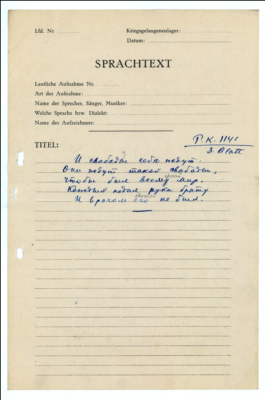 Lfd. Nr.
Kriegsgefangenenlager:
Datum:
SPRACHTEXT
Lautliche Aufnahme Nr.
Art der Aufnahme:
Name der Sprecher, Sänger, Musiker:
Welche Sprache bzw. Dialekt:
Name des Aufzeichners:
P.K. 1141
3. Blatt
TITEL:
И свободы себе
Они такой свободы,
Чтобы был всему мир.
Каждый подал руку брату
И врагом не был.